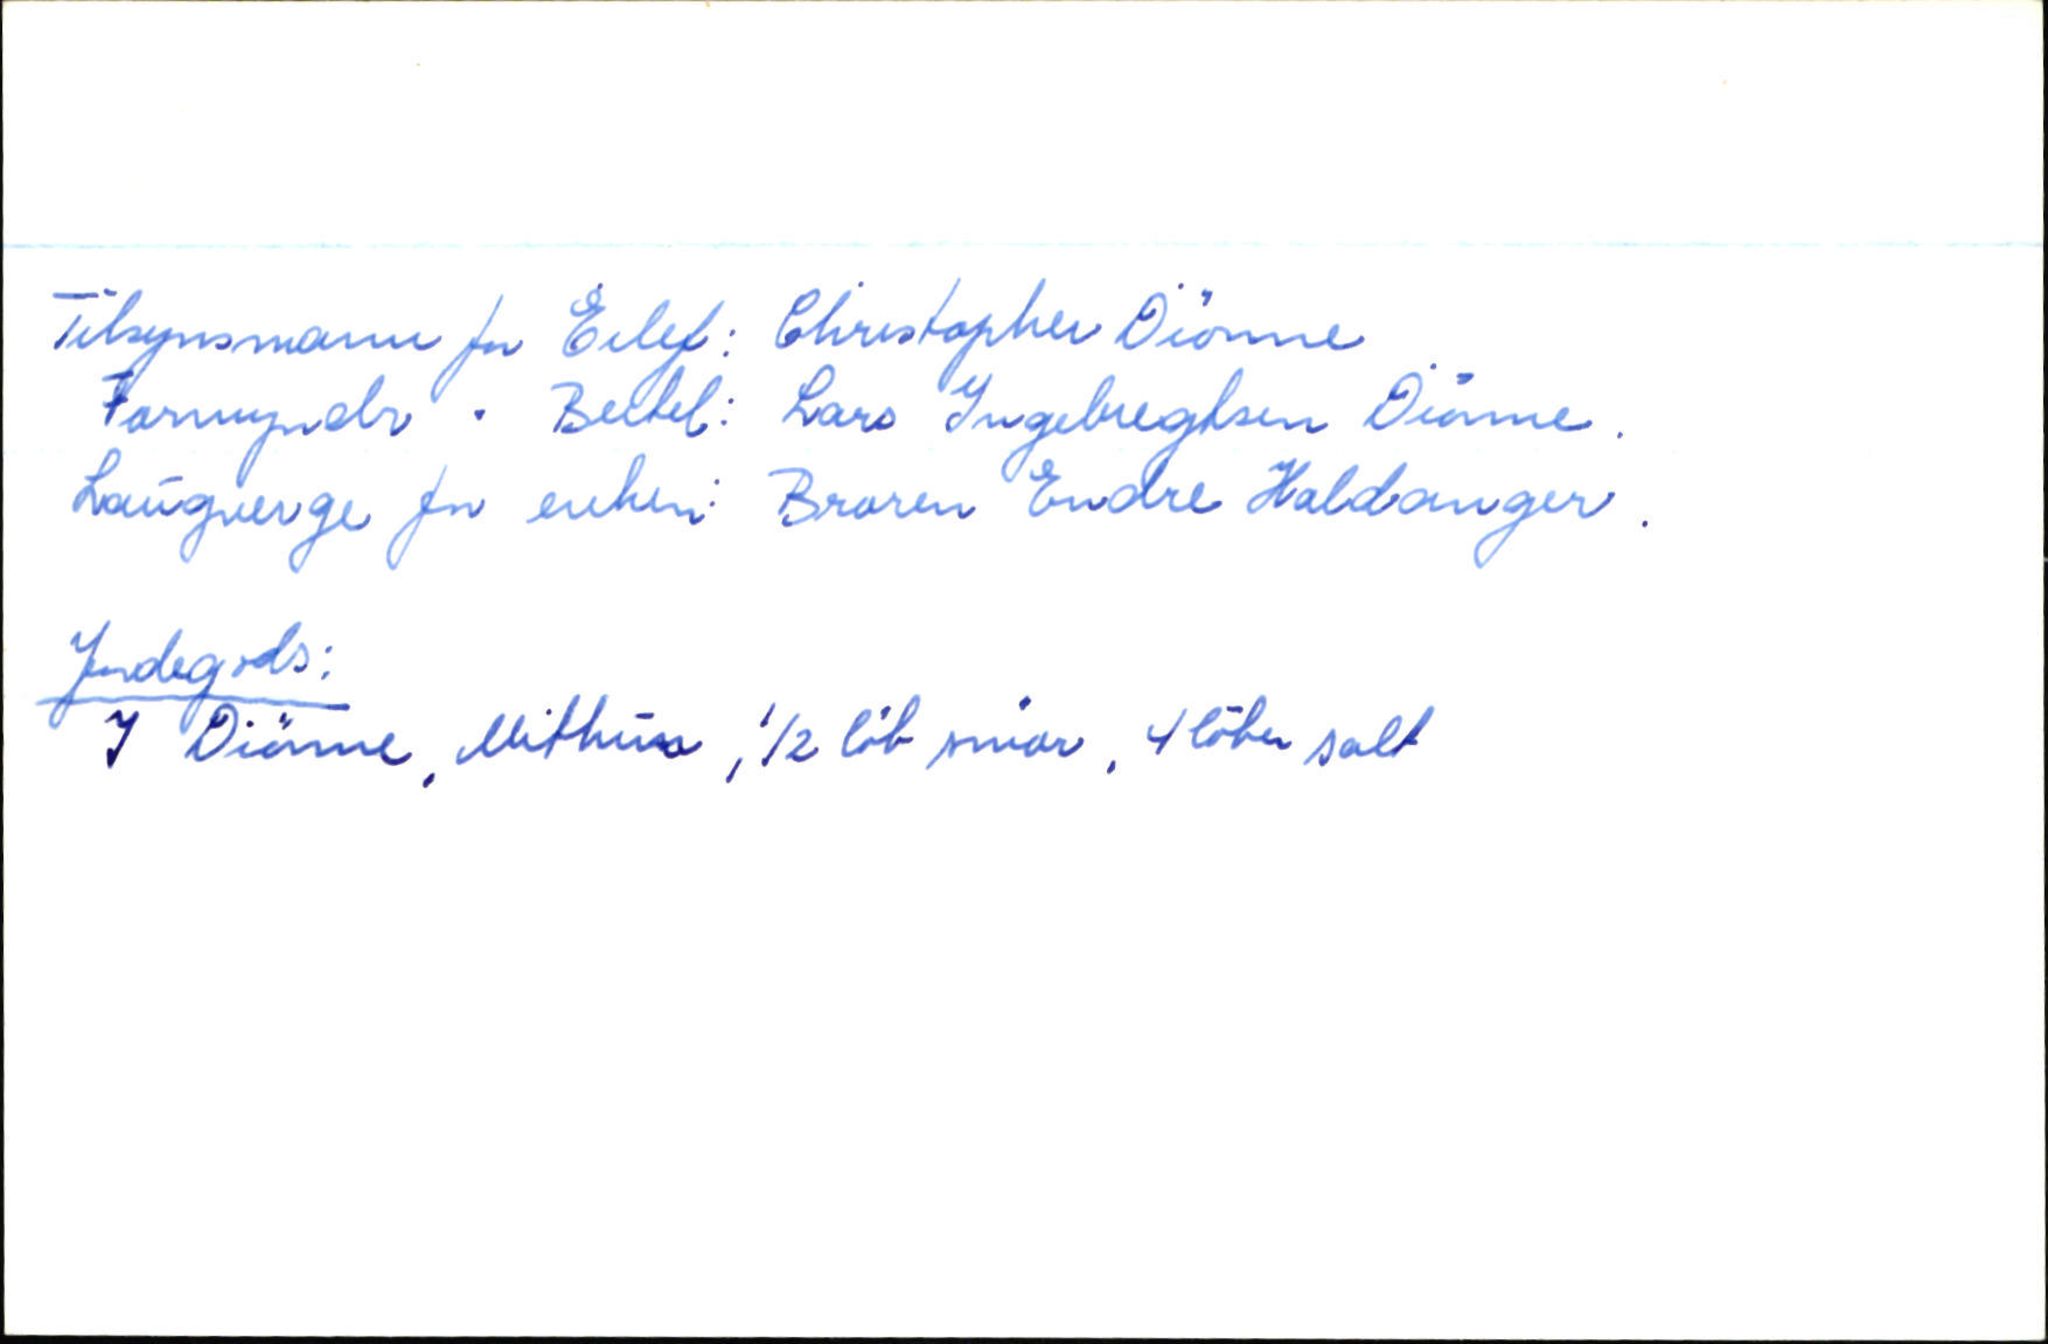 Tilsynsmann for Eilef: Christopher Diönne
Formyndr . Bertel: Lars Ingebregtsen Diönne.
Laugverge for enken: Broren Endre Haldanger.
Jordegods:
I Diönne, Mithus, 1/2 löb smör, 4 löber salt